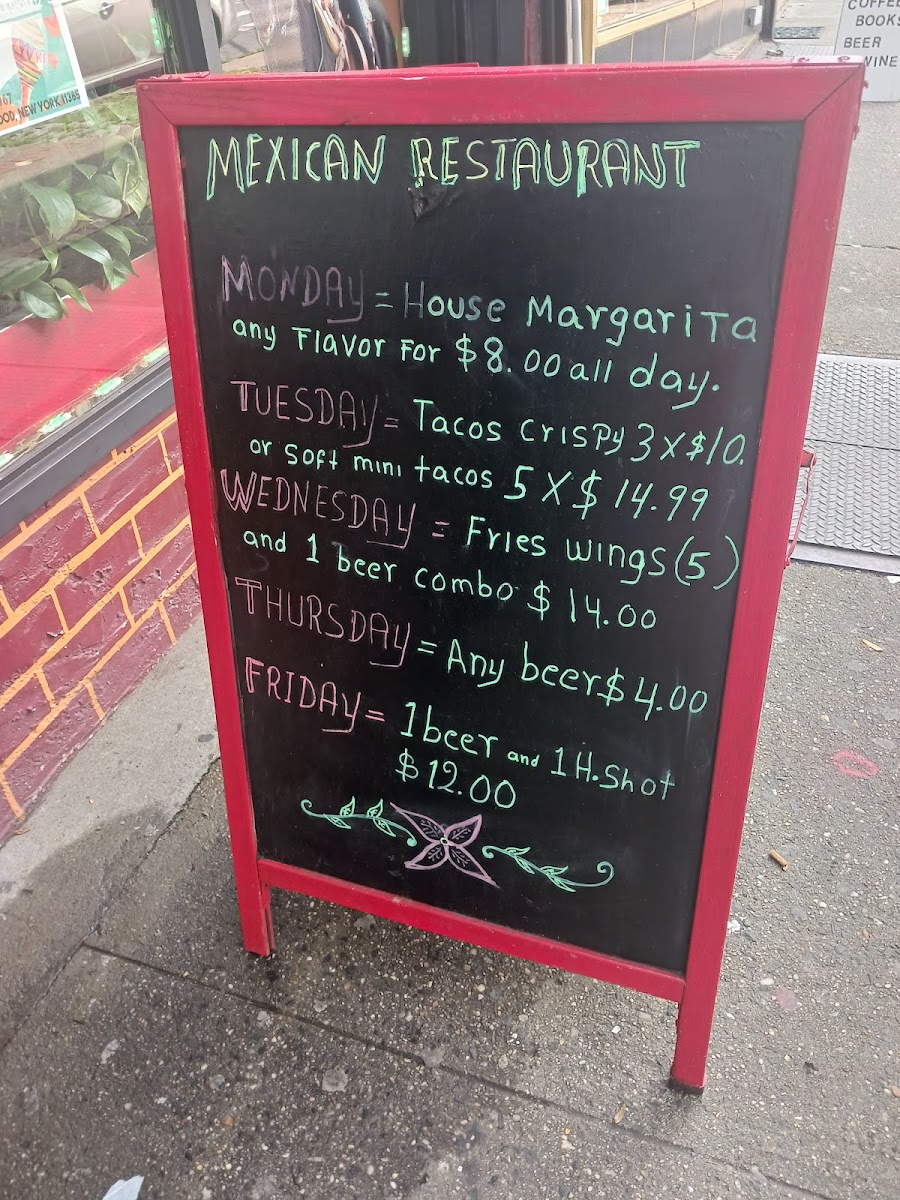 MEXICAN RESTAURANT
MONDAY = House Margarita
any Flavor For $8.00 all day.
TUESDAY = Tacos crispy 3 x $10.
or soft mini tacos 5 X $14.99
WEDNESDAY = Fries wings (5)
and 1 beer combo $14.00
THURSDAY = Any beer $4.00
FRIDAY = 1 beer and 1 H. Shot
$12.00
NEW YORK 11385
BOOKS
BEER
WINE